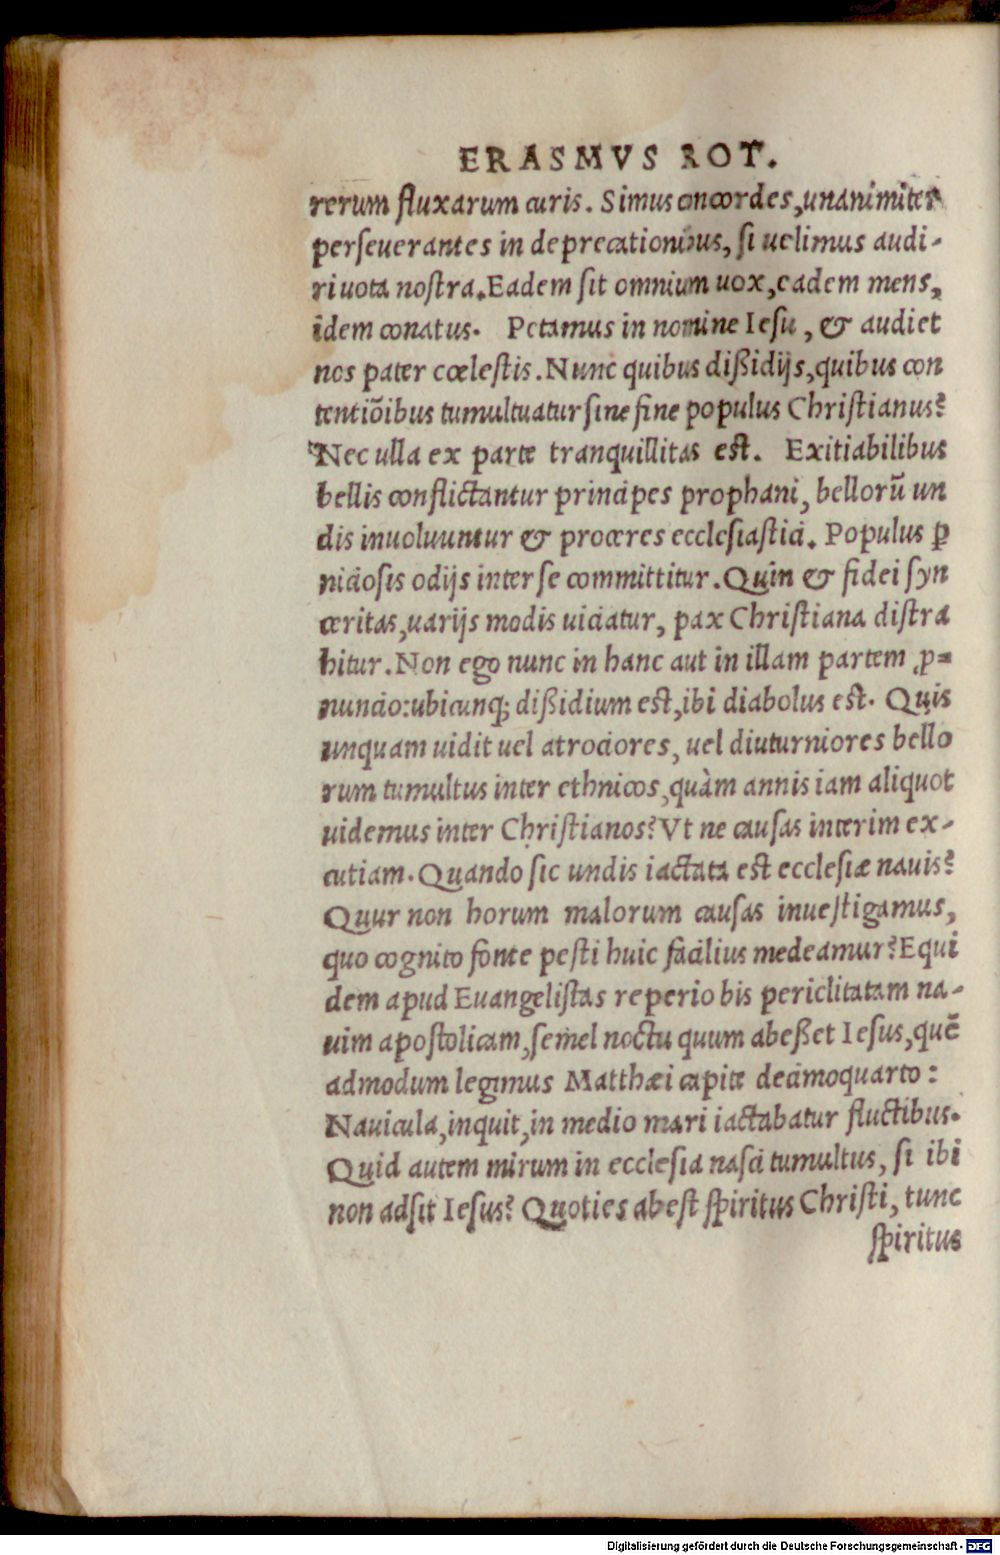 ERASMVS ROT.
rerum fluxarum curis. Simus concordes, unanimiter
perſeuerantes in deprecationibus, ſi uelimus audi-
ri uota noſtra. Eadem ſit omnium uox, eadem mens,
idem conatus. Petamus in nomine Ieſu, & audiet
nos pater cœleſtis. Nunc quibus dißidijs, quibus con
tentiõibus tumultuatur ſine fine populus Chriſtianus?
Nec ulla ex parte tranquillitas eſt. Exitiabilibus
bellis conflictantur principes prophani, bellorũ un
dis inuoluuntur & proceres eccleſiaſtici. Populus ꝑ
nicioſis odijs inter ſe committitur. Quin & fidei ſyn
ceritas, uarijs modis uiciatur, pax Chriſtiana diſtra
hitur. Non ego nunc in hanc aut in illam partem ꝓ-
nuncio: ubicunq; dißidium eſt, ibi diabolus eſt. Quis
unquam uidit uel atrociores, uel diuturniores bello
rum tumultus inter ethnicos, quàm annis iam aliquot
uidemus inter Chriſtianos? Vt ne cauſas interim ex-
cutiam. Quando ſic undis iactata eſt eccleſiæ nauis?
Quur non horum malorum cauſas inueſtigamus,
quo cognito fonte peſti huic facilius medeamur? Equi
dem apud Euangeliſtas reperio bis periclitatam na-
uim apoſtolicam, ſemel noctu quum abeßet Ieſus, quẽ
admodum legimus Matthæi capite decimoquarto:
Nauicula, inquit, in medio mari iactabatur fluctibus.
Quid autem mirum in eccleſia naſci tumultus, ſi ibi
non adſit Ieſus? Quoties abeſt ſpiritus Chriſti, tunc
ſpiritus
Digitalisierung gefördert durch die Deutsche Forschungsgemeinschaft - DFG